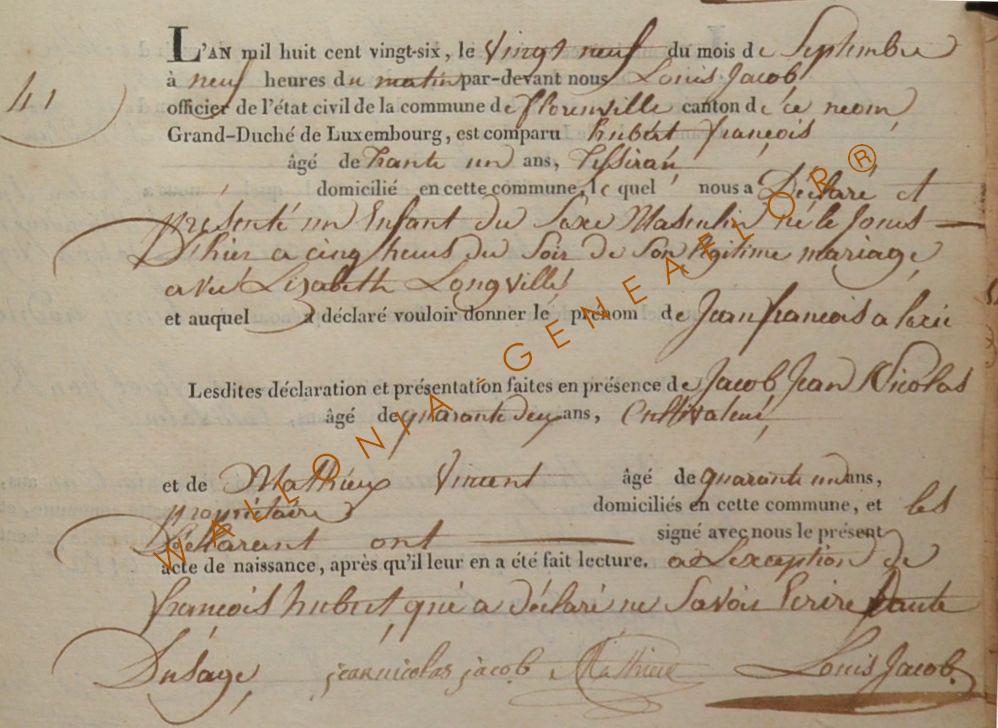 L'AN mil huit cent vingt-six, le Vingt neuf du mois de Septembre
à neuf heures du matin par-devant nous Louis Jacob
41
officier de l'état civil de la commune de florenville canton de ce nom,
Grand-Duché de Luxembourg, est comparu hubert françois
âgé de trante un ans, Tisseran,
domicilié en cette commune, le quel nous a Déclaré et
presenté un Enfant du Sexe Masculin né le Jours
D'hier a cinq heurs du Soir de Son légitime mariage,
avec Lizabeth Longville
et auquel a déclaré vouloir donner le prénom de Jean françois
Lesdites déclaration et présentation faites en présence de Jacob Jean Nicolas
âgé de quarante deux ans, Cultivateur,
et de Mathieu Vincent âgé de quarante un ans,
propriétaire domiciliés en cette commune, et les
Déclarent ont signé avec nous le présent
acte de naissance, après qu'il leur en a été fait lecture. a L'exception de
françois hubert, qui a déclaré ne Savoir Ecrire faute
Dusage,
jean nicolas jacob Mathieu Louis Jacob.
WALLONIA-GENEAFLOR®